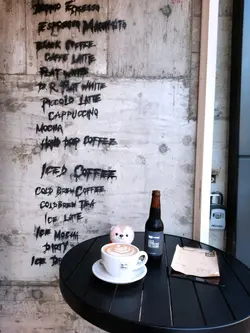 Espresso
Espresso Macchiato
Black Coffee
Caffe Latte
Flat White
D R Flat White
Piccolo Latte
Cappuccino
Mocha
Hand Drop Coffee
Iced Coffee
Cold Brew Coffee
Cold Brew Tea
Ice Late
Ice Mocha
Dirty
Ice